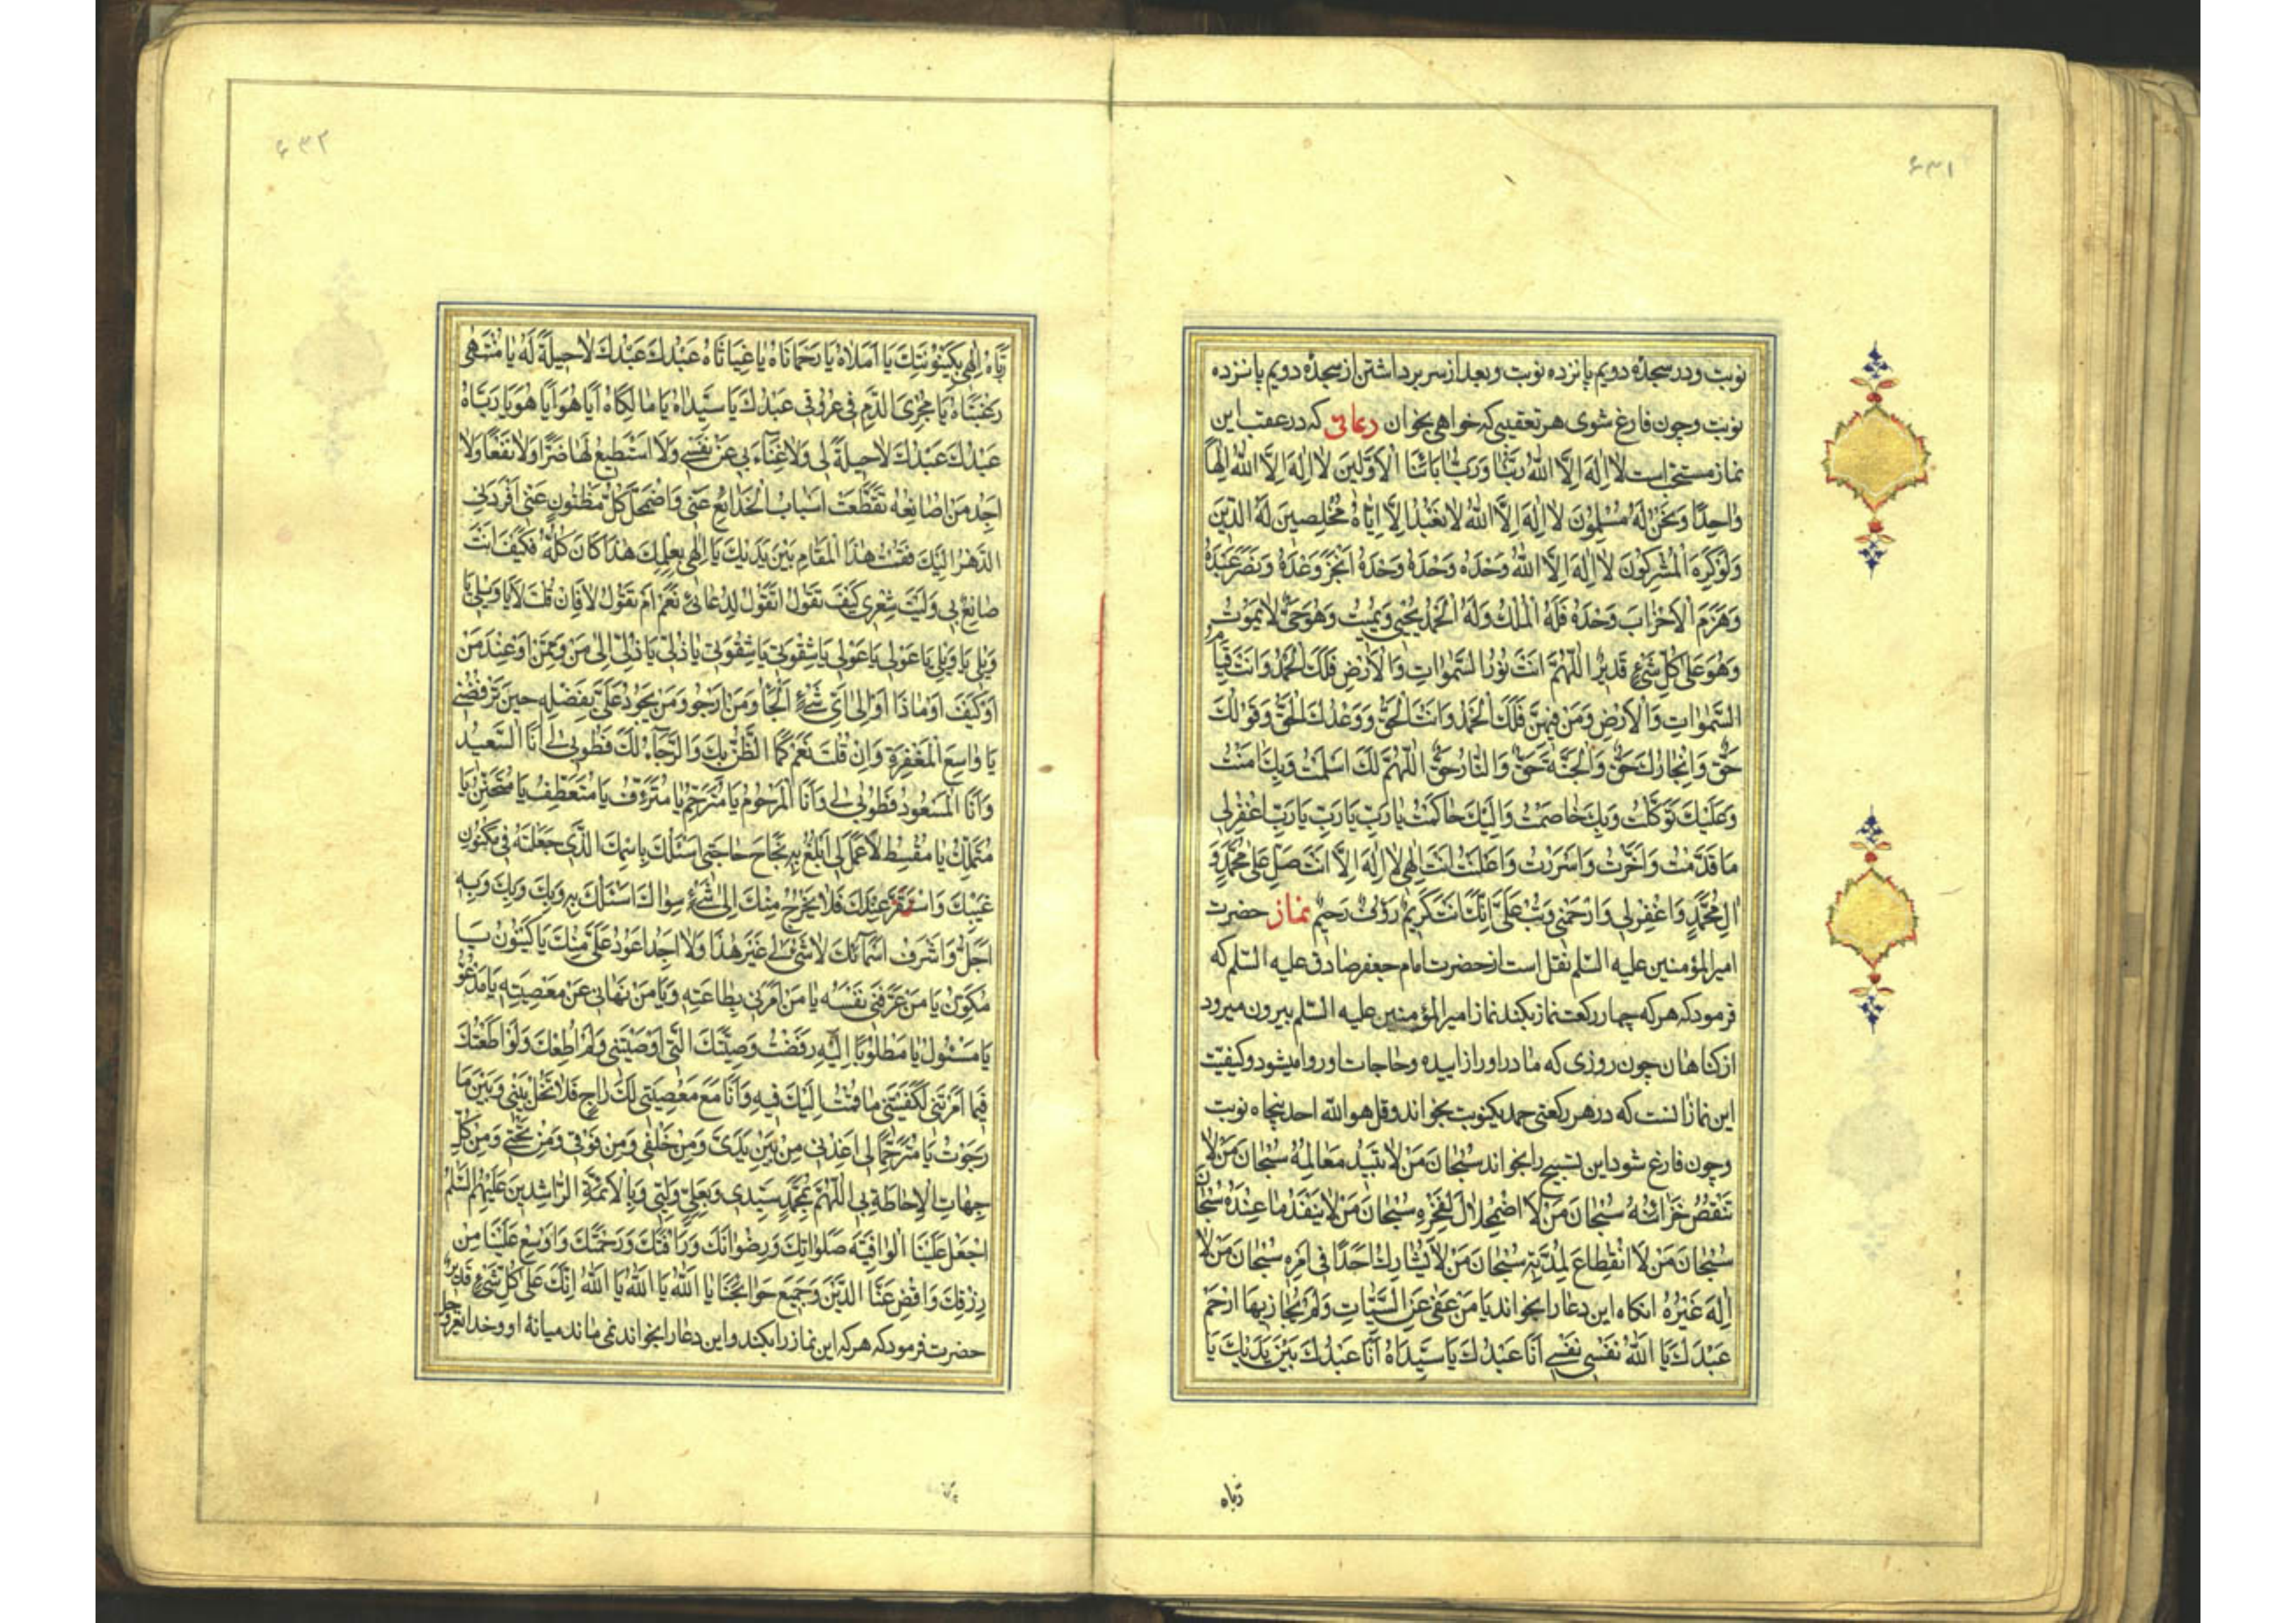 ۶۳۱
نوبت و در سجدهٔ دویم پانزده نوبت و بعد از سر برداشتن از سجدهٔ دویم پانزده
نوبت و چون فارغ شوی هر تعقیبی که خواهی بخوان دعائی که در عقب این
نماز مستحب است لا اِلهَ اِلَّا اللهُ رَبُّنا وَرَبُّ اٰبائِنَا الْاَوَّلینَ لا اِلهَ اِلَّا اللهُ اِلهاً
واحِدًا وَنَحْنُ لَهُ مُسْلِمُونَ لا اِلهَ اِلَّا اللهُ لا نَعْبُدُ اِلَّا اِیّاهُ مُخْلِصینَ لَهُ الدّینَ
وَلَوْ کَرِهَ الْمُشْرِکُونَ لا اِلهَ اِلَّا اللهُ وَحْدَهُ وَحْدَهُ وَحْدَهُ اَنْجَزَ وَعْدَهُ وَنَصَرَ عَبْدَهُ
وَهَزَمَ الْاَحْزابَ وَحْدَهُ فَلَهُ الْمُلْكُ وَلَهُ الْحَمْدُ یُحْیی وَیُمیتُ وَهُوَ حَیٌّ لا یَمُوتُ
وَهُوَ عَلی کُلِّ شَیْءٍ قَدیرٌ اَللّهُمَّ اَنْتَ نُورُ السَّمواتِ وَالْاَرْضِ فَلَكَ الْحَمْدُ وَاَنْتَ قَیّامُ
السَّمواتِ وَالْاَرْضِ وَمَنْ فیهِنَّ فَلَكَ الْحَمْدُ وَاَنْتَ الْحَقُّ وَوَعْدُكَ الْحَقُّ وَقَوْلُكَ
حَقٌّ وَاِنْجازُكَ حَقٌّ وَالْجَنَّةُ حَقٌّ وَالنّارُ حَقٌّ اَللّهُمَّ لَكَ اَسْلَمْتُ وَبِكَ اٰمَنْتُ
وَعَلَیْكَ تَوَکَّلْتُ وَبِكَ خاصَمْتُ وَاِلَیْكَ حاکَمْتُ یا رَبِّ یا رَبِّ یا رَبِّ اغْفِرْ لی
ما قَدَّمْتُ وَاَخَّرْتُ وَاَسْرَرْتُ وَاَعْلَنْتُ اَنْتَ اِلهی لا اِلهَ اِلَّا اَنْتَ صَلِّ عَلی مُحَمَّدٍ وَ
اٰلِ مُحَمَّدٍ وَاغْفِرْ لی وَارْحَمْنی وَتُبْ عَلَیَّ اِنَّكَ اَنْتَ کَریمٌ رَؤُفٌ رَحیمٌ نماز حضرت
امیرالمؤمنین علیه السّلم نقل است از حضرت امام جعفر صادق علیه السّلم که
فرمود که هر که چهار رکعت نماز بکند نماز امیرالمؤمنین علیه السّلم بیرون میرود
از کناهان چون روزی که مادر او را زاییده و حاجات او روا میشود و کیفیّت
این نماز انست که در هر رکعتی حمد یکنوبت بخواند و قل هو الله احد پنجاه نوبت
و چون فارغ شود این تسبیح را بخواند سُبْحانَ مَنْ لا تَبیدُ مَعالِمُهُ سُبْحانَ مَنْ لا
تَنْقُصُ خَزائِنُهُ سُبْحانَ مَنْ لَا اضْمِحْلالَ لِفَخْرِهِ سُبْحانَ مَنْ لا یَنْفَدُ ما عِنْدَهُ سُبْحانَ
سُبْحانَ مَنْ لَا انْقِطاعَ لِمُدَّتِهِ سُبْحانَ مَنْ لا یُشارِكُ اَحَدًا فی اَمْرِهِ سُبْحانَ مَنْ لا
اِلهَ غَیْرُهُ انکاه این دعا را بخواند یا مَنْ عَفی عَنِ السَّیِّئاتِ وَلَمْ یُجازِ بِهَا ارْحَمْ
عَبْدَكَ یا اللهُ نَفْسی نَفْسی اَنَا عَبْدُكَ یا سَیِّداهُ اَنَا عَبْدُكَ بَیْنَ یَدَیْكَ یا
ربّاه
۶۳۲
رَبّاهُ اِلهی بِکَیْنُونَتِكَ یا اَمَلاهُ یا رَحْماناهُ یا غِیاثاهُ عَبْدُكَ عَبْدُكَ لا حیلَةَ لَهُ یا مُنْتَهی
رَغْبَتاهُ یا مُجْرِیَ الدَّمِ فی عُرُوقی عَبْدُكَ یا سَیِّداهُ یا مالِکاهُ اَیا هُوَ اَیا هُوَ یا رَبّاهُ
عَبْدُكَ عَبْدُكَ لا حیلَةَ لی وَلا غِناءَ بی عَنْ نَفْسی وَلا اَسْتَطیعُ لَها ضَرًّا وَلا نَفْعًا وَلا
اَجِدُ مَنْ اُصانِعُهُ تَقَطَّعَتْ اَسْبابُ الْخَدائِعِ عَنّی وَاضْمَحَلَّ کُلُّ مَظْنُونٍ عَنّی اَفْرَدَنِی
الدَّهْرُ اِلَیْكَ فَقُمْتُ هذَا الْمَقامَ بَیْنَ یَدَیْكَ یا اِلهی بِعِلْمِكَ هذا کانَ کُلُّهُ فَکَیْفَ اَنْتَ
صانِعٌ بی وَلَیْتَ شِعْری کَیْفَ تَقُولُ اَتَقُولُ لِدُعائی نَعَمْ اَمْ تَقُولُ لا فَاِنْ قُلْتَ لا یا وَیْلی یا
وَیْلی یا وَیْلی یا عَوْلی یا عَوْلی یا شِقْوَتی یا شِقْوَتی یا ذُلّی یا ذُلّی اِلی مَنْ وَمِمَّنْ اَوْ عِنْدَ مَنْ
اَوْ کَیْفَ اَوْ ماذا اَوْ اِلی اَیِّ شَیْءٍ اَلْجَاُ وَمَنْ اَرْجُو وَمَنْ یَجُودُ عَلَیَّ بِفَضْلِهِ حینَ تَرْفُضُنی
یا واسِعَ الْمَغْفِرَةِ وَاِنْ قُلْتَ نَعَمْ کَمَا الظَّنُّ بِكَ وَالرَّجاءُ لَكَ فَطُوبی لی اَنَا السَّعیدُ
وَاَنَا الْمَسْعُودُ فَطُوبی لی وَاَنَا الْمَرْحُومُ یا مُتَرَحِّمُ یا مُتَرَئِّفُ یا مُتَعَطِّفُ یا مُتَحَنِّنُ یا
مُتَمَلِّكُ یا مُقْسِطُ لا عَمَلَ لی اَبْلُغُ بِهِ نَجاحَ حاجَتی اَسْئَلُكَ بِاسْمِكَ الَّذی جَعَلْتَهُ فی مَکْنُونِ
غَیْبِكَ وَاسْتَقَرَّ عِنْدَكَ فَلا یَخْرُجُ مِنْكَ اِلی شَیْءٍ سِواكَ اَسْئَلُكَ بِهِ وَبِكَ وَبِكَ وَبِهِ
اَجَلُّ وَاَشْرَفُ اَسْمائِكَ لا شَیْءَ لی غَیْرَ هذا وَلا اَجِدُ اَعْوَدَ عَلَیَّ مِنْكَ یا کَیْنُونُ یا
مُکَوِّنُ یا مَنْ عَرَّفَنی نَفْسَهُ یا مَنْ اَمَرَنی بِطاعَتِهِ وَیا مَنْ نَهانی عَنْ مَعْصِیَتِهِ یا مَدْعُوُّ
یا مَسْئُولُ یا مَطْلُوبًا اِلَیْهِ رَفَضْتُ وَصِیَّتَكَ الَّتی اَوْصَیْتَنی وَلَمْ اُطِعْكَ وَلَوْ اَطَعْتُكَ
فیما اَمَرْتَنی لَکَفَیْتَنی ما قُمْتُ اِلَیْكَ فیهِ وَاَنَا مَعَ مَعْصِیَتی لَكَ راجٍ فَلا تَحُلْ بَیْنی وَبَیْنَ ما
رَجَوْتُ یا مُتَرَحِّمًا لی اَعِذْنی مِنْ بَیْنِ یَدَیَّ وَمِنْ خَلْفی وَمِنْ فَوْقی وَمِنْ تَحْتی وَمِنْ کُلِّ
جِهاتِ الْاِحاطَةِ بی اَللّهُمَّ بِمُحَمَّدٍ سَیِّدی وَبِعَلِیٍّ وَلِیّی وَبِالْاَئِمَّةِ الرّاشِدینَ عَلَیْهِمُ السَّلمُ
اجْعَلْ عَلَیْنَا صَلَواتِكَ وَرِضْوانَكَ وَرَاْفَتَكَ وَرَحْمَتَكَ وَاَوْسِعْ عَلَیْنا مِنْ
رِزْقِكَ وَاقْضِ عَنَّا الدَّیْنَ وَجَمیعَ حَوائِجِنا یا اللهُ یا اللهُ یا اللهُ اِنَّكَ عَلی کُلِّ شَیْءٍ قَدیرٌ
حضرت فرمود که هر که این نماز را بکند و این دعا را بخواند نمی ماند میانهٔ او و خدا